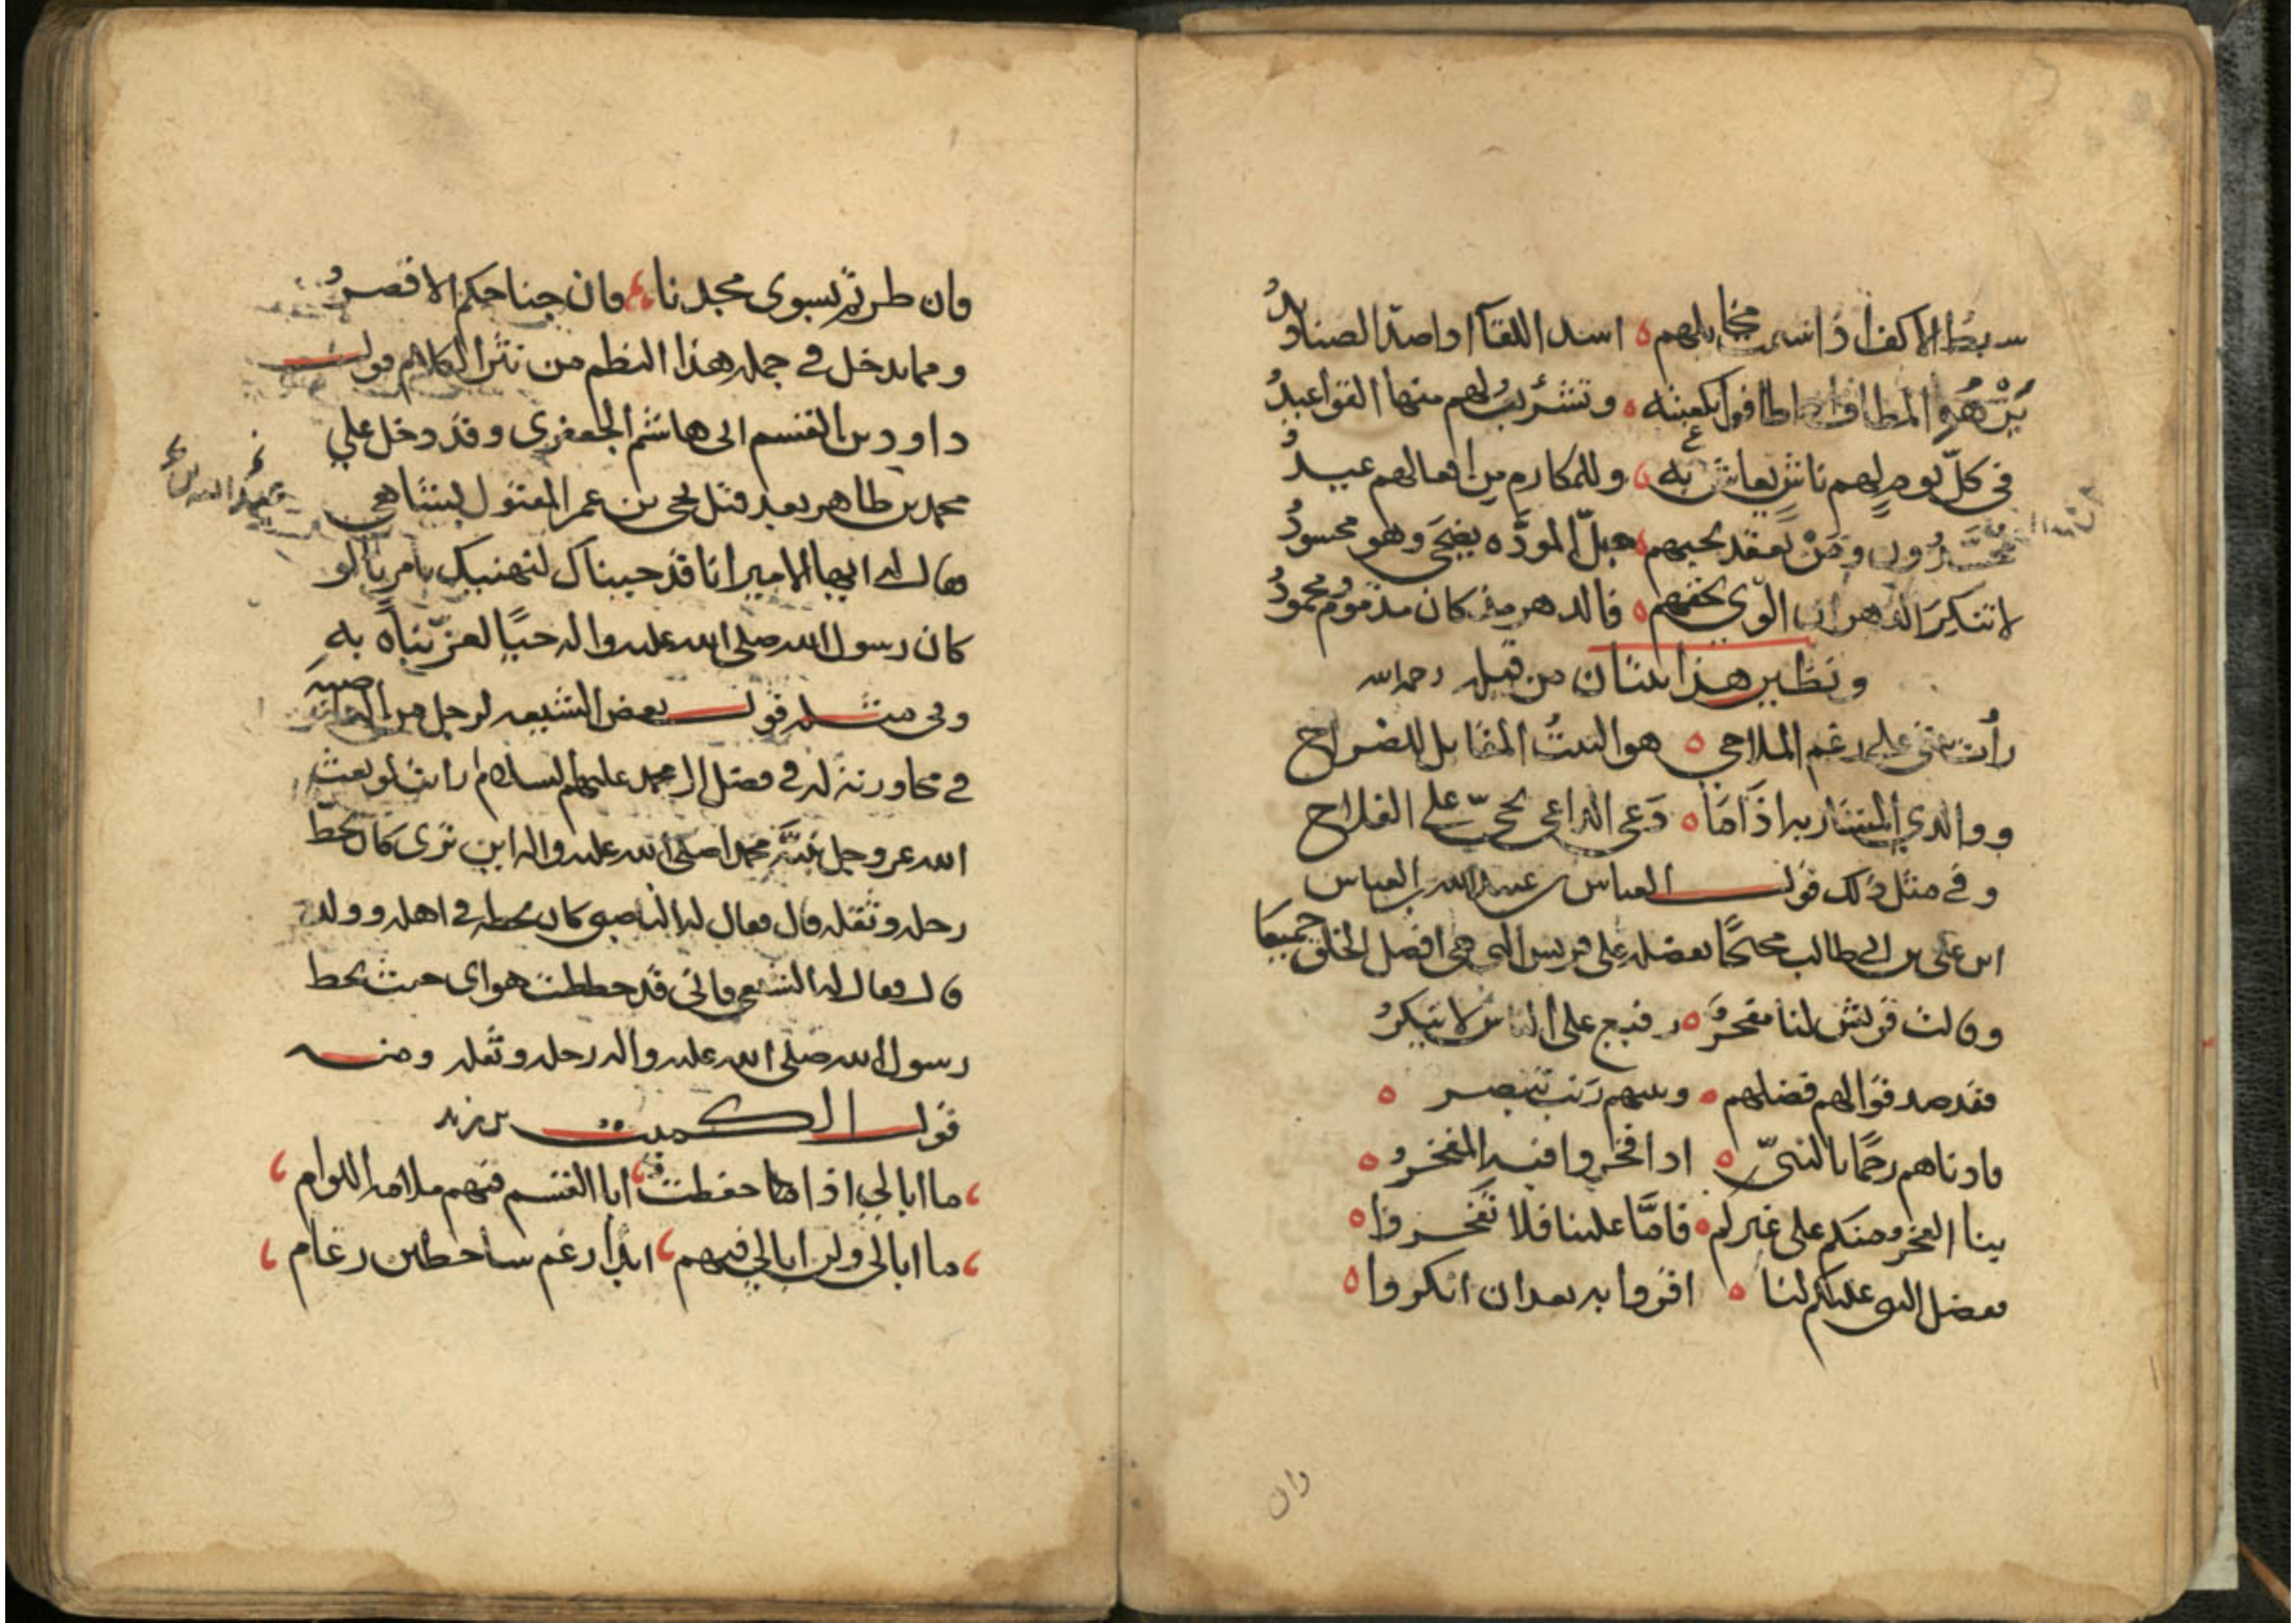 سبط الاكف اذا سمت مخايلهم ه اسد اللقآ اذا صد الصناديدُ
يزهو المطاف اذا طافوا بكعبته ه وتشرئب لهم منها القواعيدُ
في كل يوم لهم ناش يعاش به ه وللمكارم من افعالهم عيدُ
محسدون ومن يعقد بحبهم حبل المودّه يضحى وهو محسودُ
لا تنكر الدهر ان الوى بحقهم ه فالدهر مذ كان مذموم محمودُ
ونظير هذا بيتان من قيله رحمه الله
على رغم الملاحي ه هو البيتُ المقابل للضراح
ووالدي المشار به اذا ما ه دعى الداعي بحيّ على الفلاح
وفي مثل ذلك قول العباس بن عبد الله بن العباس
ابن علي بن ابي طالب محتجًا بفضله على قريش التي هي افضل الخلق جميعا
وقالت قريش لنا مفخرُ ه رفيع على الناس لا ينكرُ
فقد صدقوا لهم فضلهم ه وبينهم رتب تبصر ه
وادناهم رحمًا بالنبيّ ه اذا فخروا فبه المفخرُ ه
بنا الفخر منكم على غيركم ه فامّا علينا فلا تفخروا ه
ففضل النبي عليكم لنا ه اقروا به بعد ان انكروا ه
وان
وان طرتم بسوى مجدنا فان جناحكم الاقصرُ
ومما يدخل في جمله هذا النظم من نثر الكلام قول
داود بن القسم ابي هاشم الجعفري وقد دخل علي
محمد بن طاهر بعد قتل يحيى بن عمر المقتول بشاهي
فقال له ايها الامير انا قد جيناك لنهنيك بامر لو
كان رسول الله صلى الله عليه واله حيًا لعزّيناه به
وفي مثله قول بعض الشيعه لرجل من الناصبه
في محاورته له في فضل ال محمد عليهم السلام رايت لو بعث
الله عز وجل نبيّه محمدا صلى الله عليه واله اين ترى كان يحطّ
رحله وثقله قال فقال له الناصبي كان يحطه في اهله وولده
قال فقال له الشيعي فاني قد حططت هواي حيث يحط
رسول الله صلى الله عليه واله رحله وثقله ومنه
قول الكميت بن زيد
ما ابالي اذا حفظت ابا القسم فيهم ملامه اللوام
ما ابالي ولن ابالي فيهم ابدًا رغم ساخطين رغام